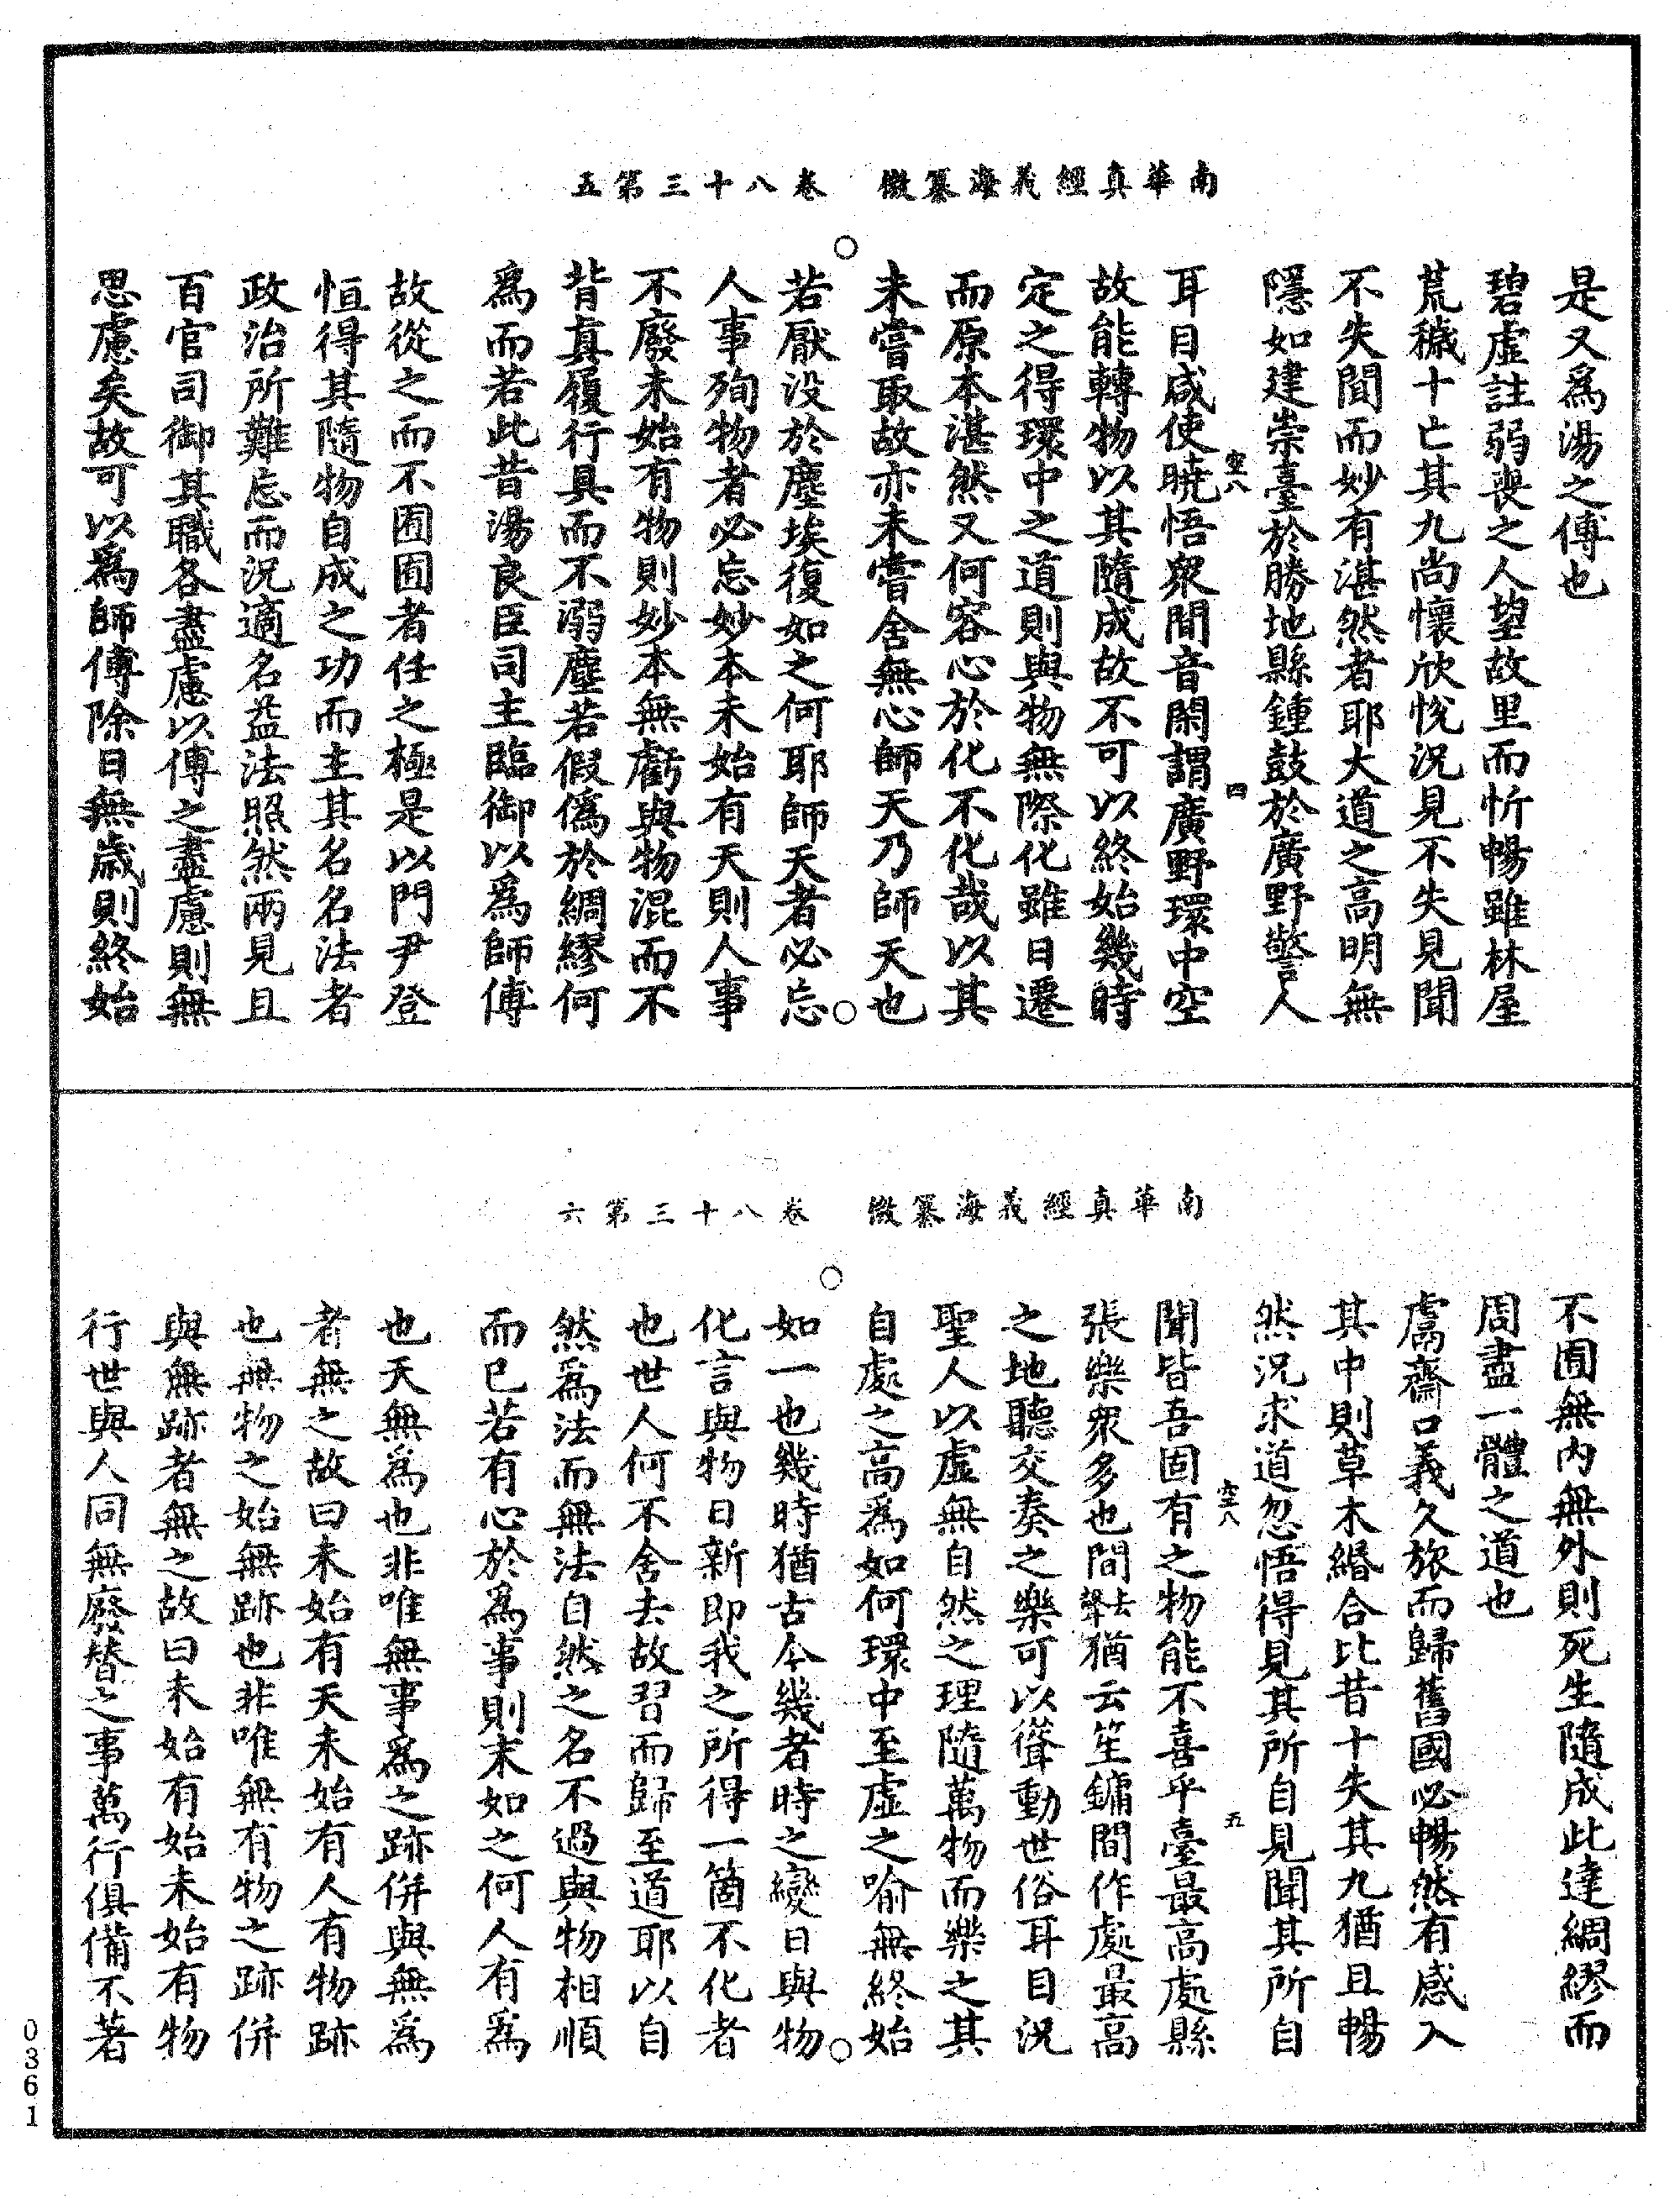 南華真經義海纂微　卷八十三第五
是又爲湯之傅也
碧虛註弱喪之人望故里而忻暢雖林屋
荒穢十亡其九尚懷欣悅況見不失見聞
不失聞而妙有湛然者耶大道之高明無
隱如建崇臺於勝地縣鍾鼓於廣野警人
空八　四
耳目咸使曉悟衆間音閑謂廣野環中空
故能轉物以其隨成故不可以終始幾時
定之得環中之道則與物無際化雖日遷
而原本湛然又何容心於化不化哉以其
未嘗取故亦未嘗舍無心師天乃師天也
若厭没於塵埃復如之何耶師天者必忘
人事殉物者必忘妙本未始有天則人事
不廢未始有物則妙本無虧與物混而不
背真履行具而不溺塵若假僞於綢繆何
爲而若此昔湯良臣司主臨御以爲師傅
故從之而不囿囿者任之極是以門尹登
恒得其隨物自成之功而主其名名法者
政治所難忘而況適名益法照然兩見且
百官司御其職各盡慮以傅之盡慮則無
思慮矣故可以爲師傅除日無歲則終始
南華真經義海纂微　卷八十三第六
不囿無內無外則死生隨成此達綢繆而
周盡一體之道也
鬳齋口義久旅而歸舊國必暢然有感入
其中則草木緡合比昔十失其九猶且暢
然況求道忽悟得見其所自見聞其所自
空八　五
聞皆吾固有之物能不喜乎臺最高處縣
張樂衆多也間去聲猶云笙鏞間作處最高
之地聽交奏之樂可以聳動世俗耳目況
聖人以虛無自然之理隨萬物而樂之其
自處之高爲如何環中至虛之喻無終始
如一也幾時猶古今幾者時之變日與物
化言與物日新即我之所得一箇不化者
也世人何不舍去故習而歸至道耶以自
然爲法而無法自然之名不過與物相順
而已若有心於爲事則末如之何人有爲
也天無爲也非唯無事爲之跡併與無爲
者無之故曰未始有天未始有人有物跡
也無物之始無跡也非唯無有物之跡併
與無跡者無之故曰未始有始未始有物
行世與人同無廢替之事萬行俱備不著
0361